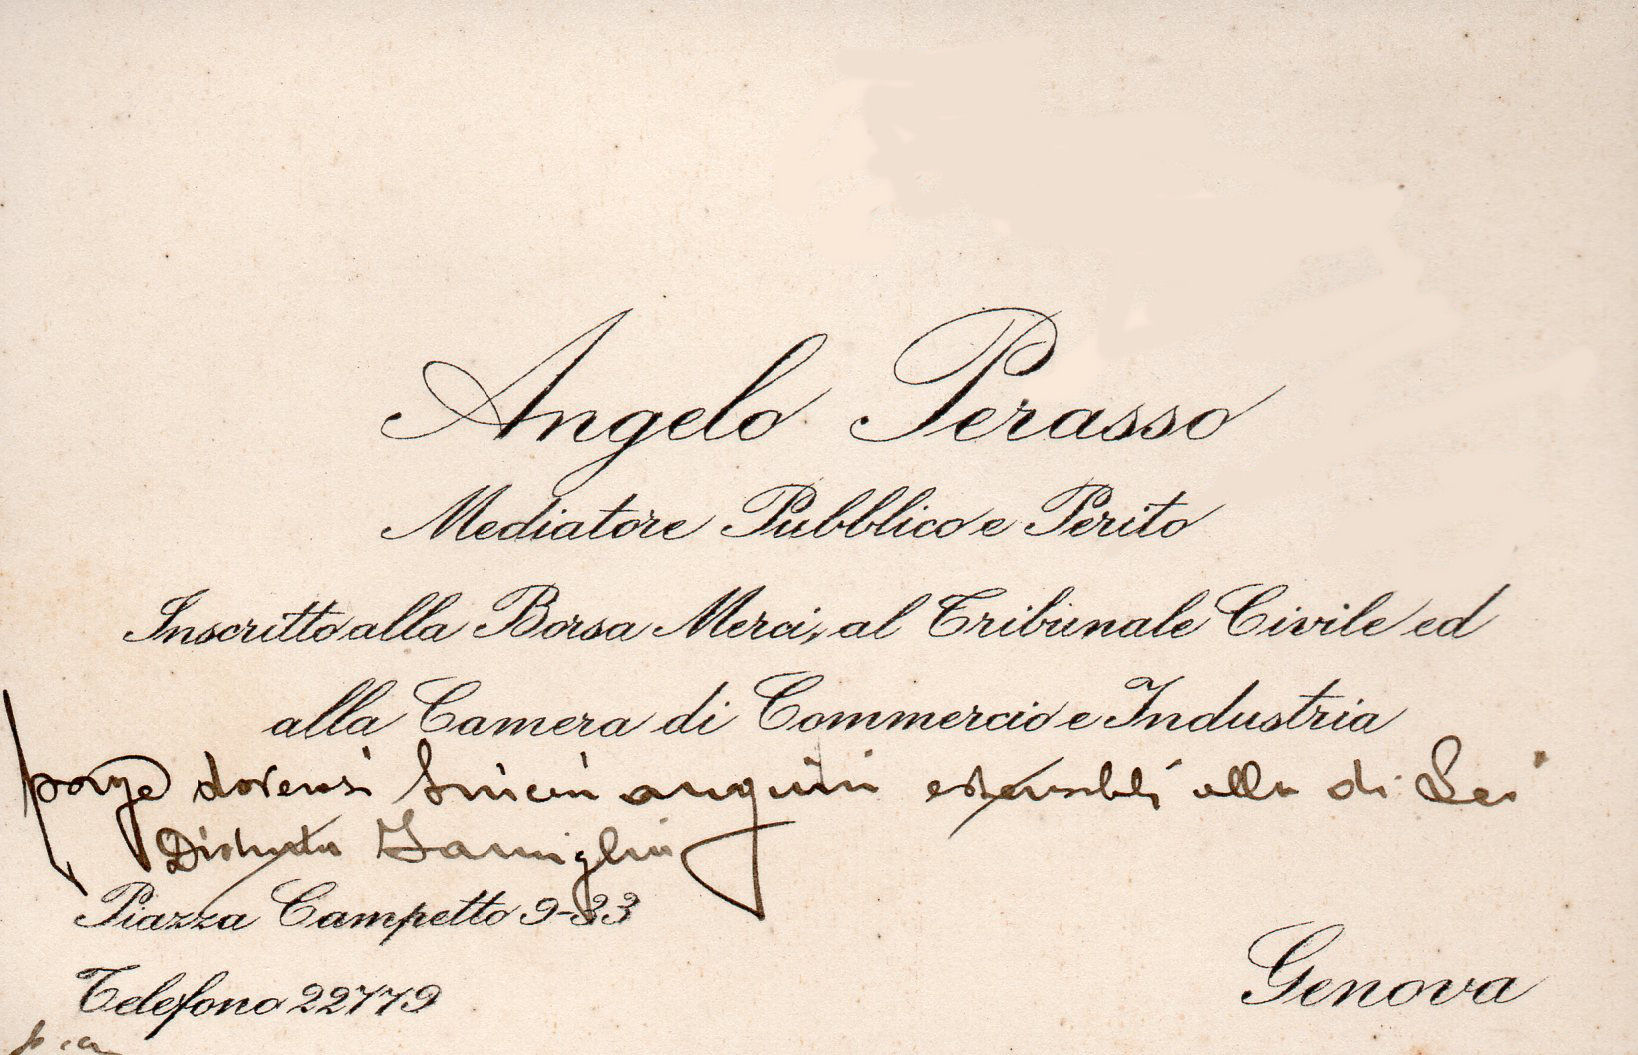 Angelo Perasso
Mediatore Pubblico e Perito
Inscritto alla Borsa Merci, al Tribunale Civile ed
alla Camera di Commercio e Industria
porge doverosi sinceri auguri estensibili alla di Lei
Distinta Famiglia
Piazza Campetto 9-33
Telefono 22779
Genova